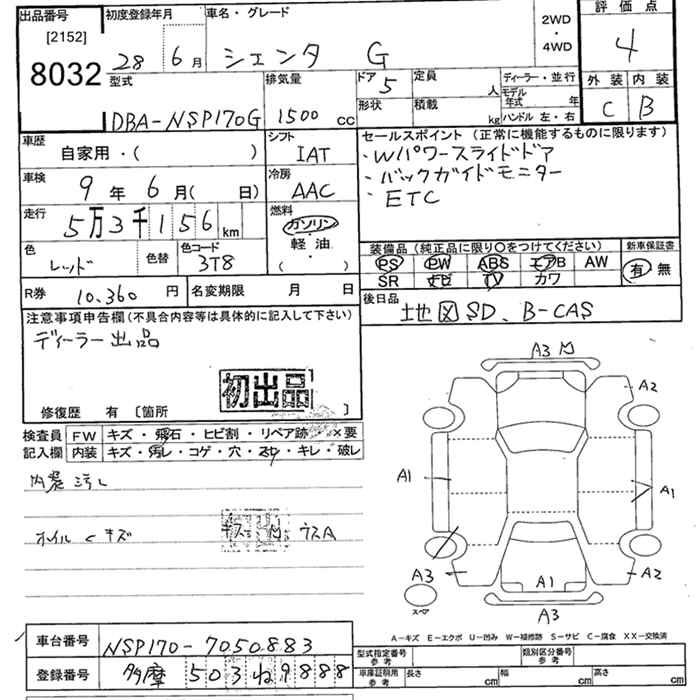 出品番号 初度登録年月 車名・グレード 2WD・4WD 評価点
[2152]
8032 28 6月 シエンタ G 4
型式 排気量 ドア 5 定員 人 ディーラー・並行 外装 内装
形状 積載 kg モデル年式 年 C B
DBA-NSP170G 1500 cc ハンドル 左・右
車歴 シフト セールスポイント (正常に機能するものに限ります)
自家用・( ) IAT ・Wパワースライドドア
車検 冷房 ・バックガイドモニター
9年 6月( 日) AAC ・ETC
走行 燃料
5万3千156km ガソリン
軽油
( )
色 色替 色コード 装備品 (純正品に限り○をつけてください) 新車保証書
レッド 3T8 PS PW ABS エアB AW 有 無
SR ナビ TV カワ
R券 10,360円 名変期限 月 日 後日品 地図SD、B-CAS
注意事項申告欄(不具合内容等は具体的に記入して下さい)
ディーラー出品
初出品
修復歴 有 [箇所 ]
検査員 FW キズ・飛石・ヒビ割・リペア跡・×要
記入欄 内装 キズ・汚レ・コゲ・穴・スレ・キレ・破レ
内装汚レ
ホイルキズ ウスA
A3
A2
A1 A1
A3 A1 A2
スペア
A3
A-キズ E-エクボ U-凹み W-補修跡 S-サビ C-腐食 XX-交換済
車台番号 NSP170-7050883 型式指定番号 参考 類別区分番号 参考
登録番号 多摩 503 ね 9888 車庫証明用 参考 長さ cm 幅 cm 高さ cm